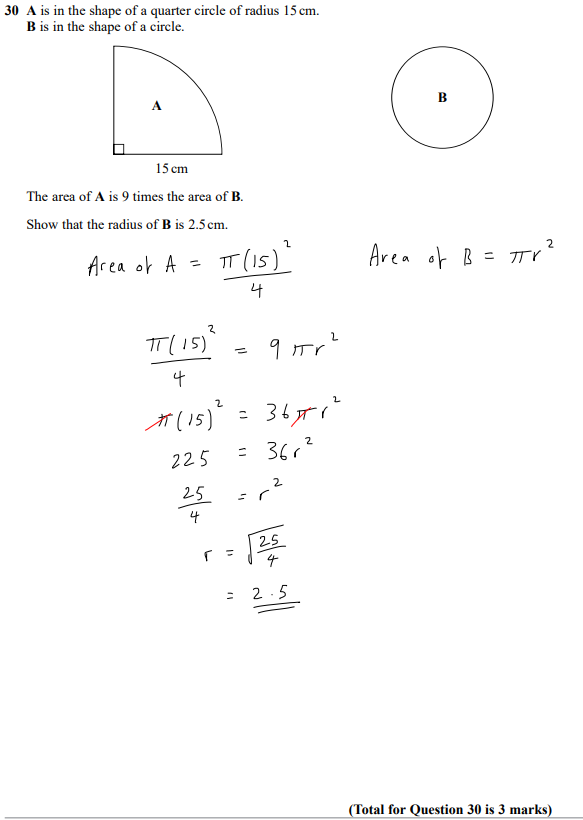 30 A is in the shape of a quarter circle of radius 15 cm.
B is in the shape of a circle.
A
B
15 cm
The area of A is 9 times the area of B.
Show that the radius of B is 2.5 cm.
Area of A = π(15)²/4
Area of B = πr²
π(15)²/4 = 9πr²
π(15)² = 36πr²
225 = 36r²
25/4 = r²
r = √(25/4)
= 2.5
(Total for Question 30 is 3 marks)